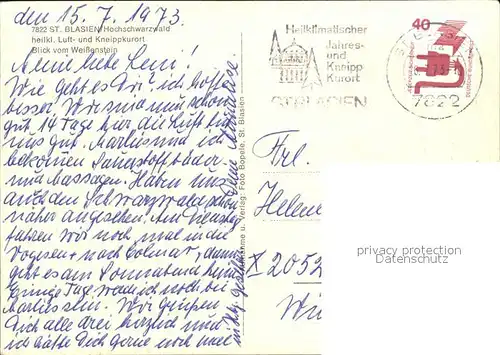 den 15. 7. 1973.
7822 ST. BLASIEN/Hochschwarzwald
heilkl. Luft- und Kneippkurort
Blick vom Weißenstein
Meine liebe Leni!
Wie geht es Dir? ich hoffe
besser. Wir sind nun schon
gut 14 Tage hier die Luft tut
uns gut. Marlies und ich
bekommen Sauerstoffbäder
und Massagen. Haben uns
auch den Schwarzwald schon
näher angesehen. Am Dienstag
fahren wir noch mal in die
Vogesen nach Colmar, dann
geht es am Sonnabend heim
Einige Tage werde ich noch bei
Marlies sein. Wir grüßen
Dich alle drei herzlich und
ich hätte Dich gerne noch mal
u. Verlag: Foto Bopele, St. Blasien
Heilklimatischer
Jahres-
und
Kneipp
Kurort
ST. BLASIEN
40
DEUTSCHE BUNDESPOST
7822
Frl.
Helene
X 2052
privacy protection
Datenschutz